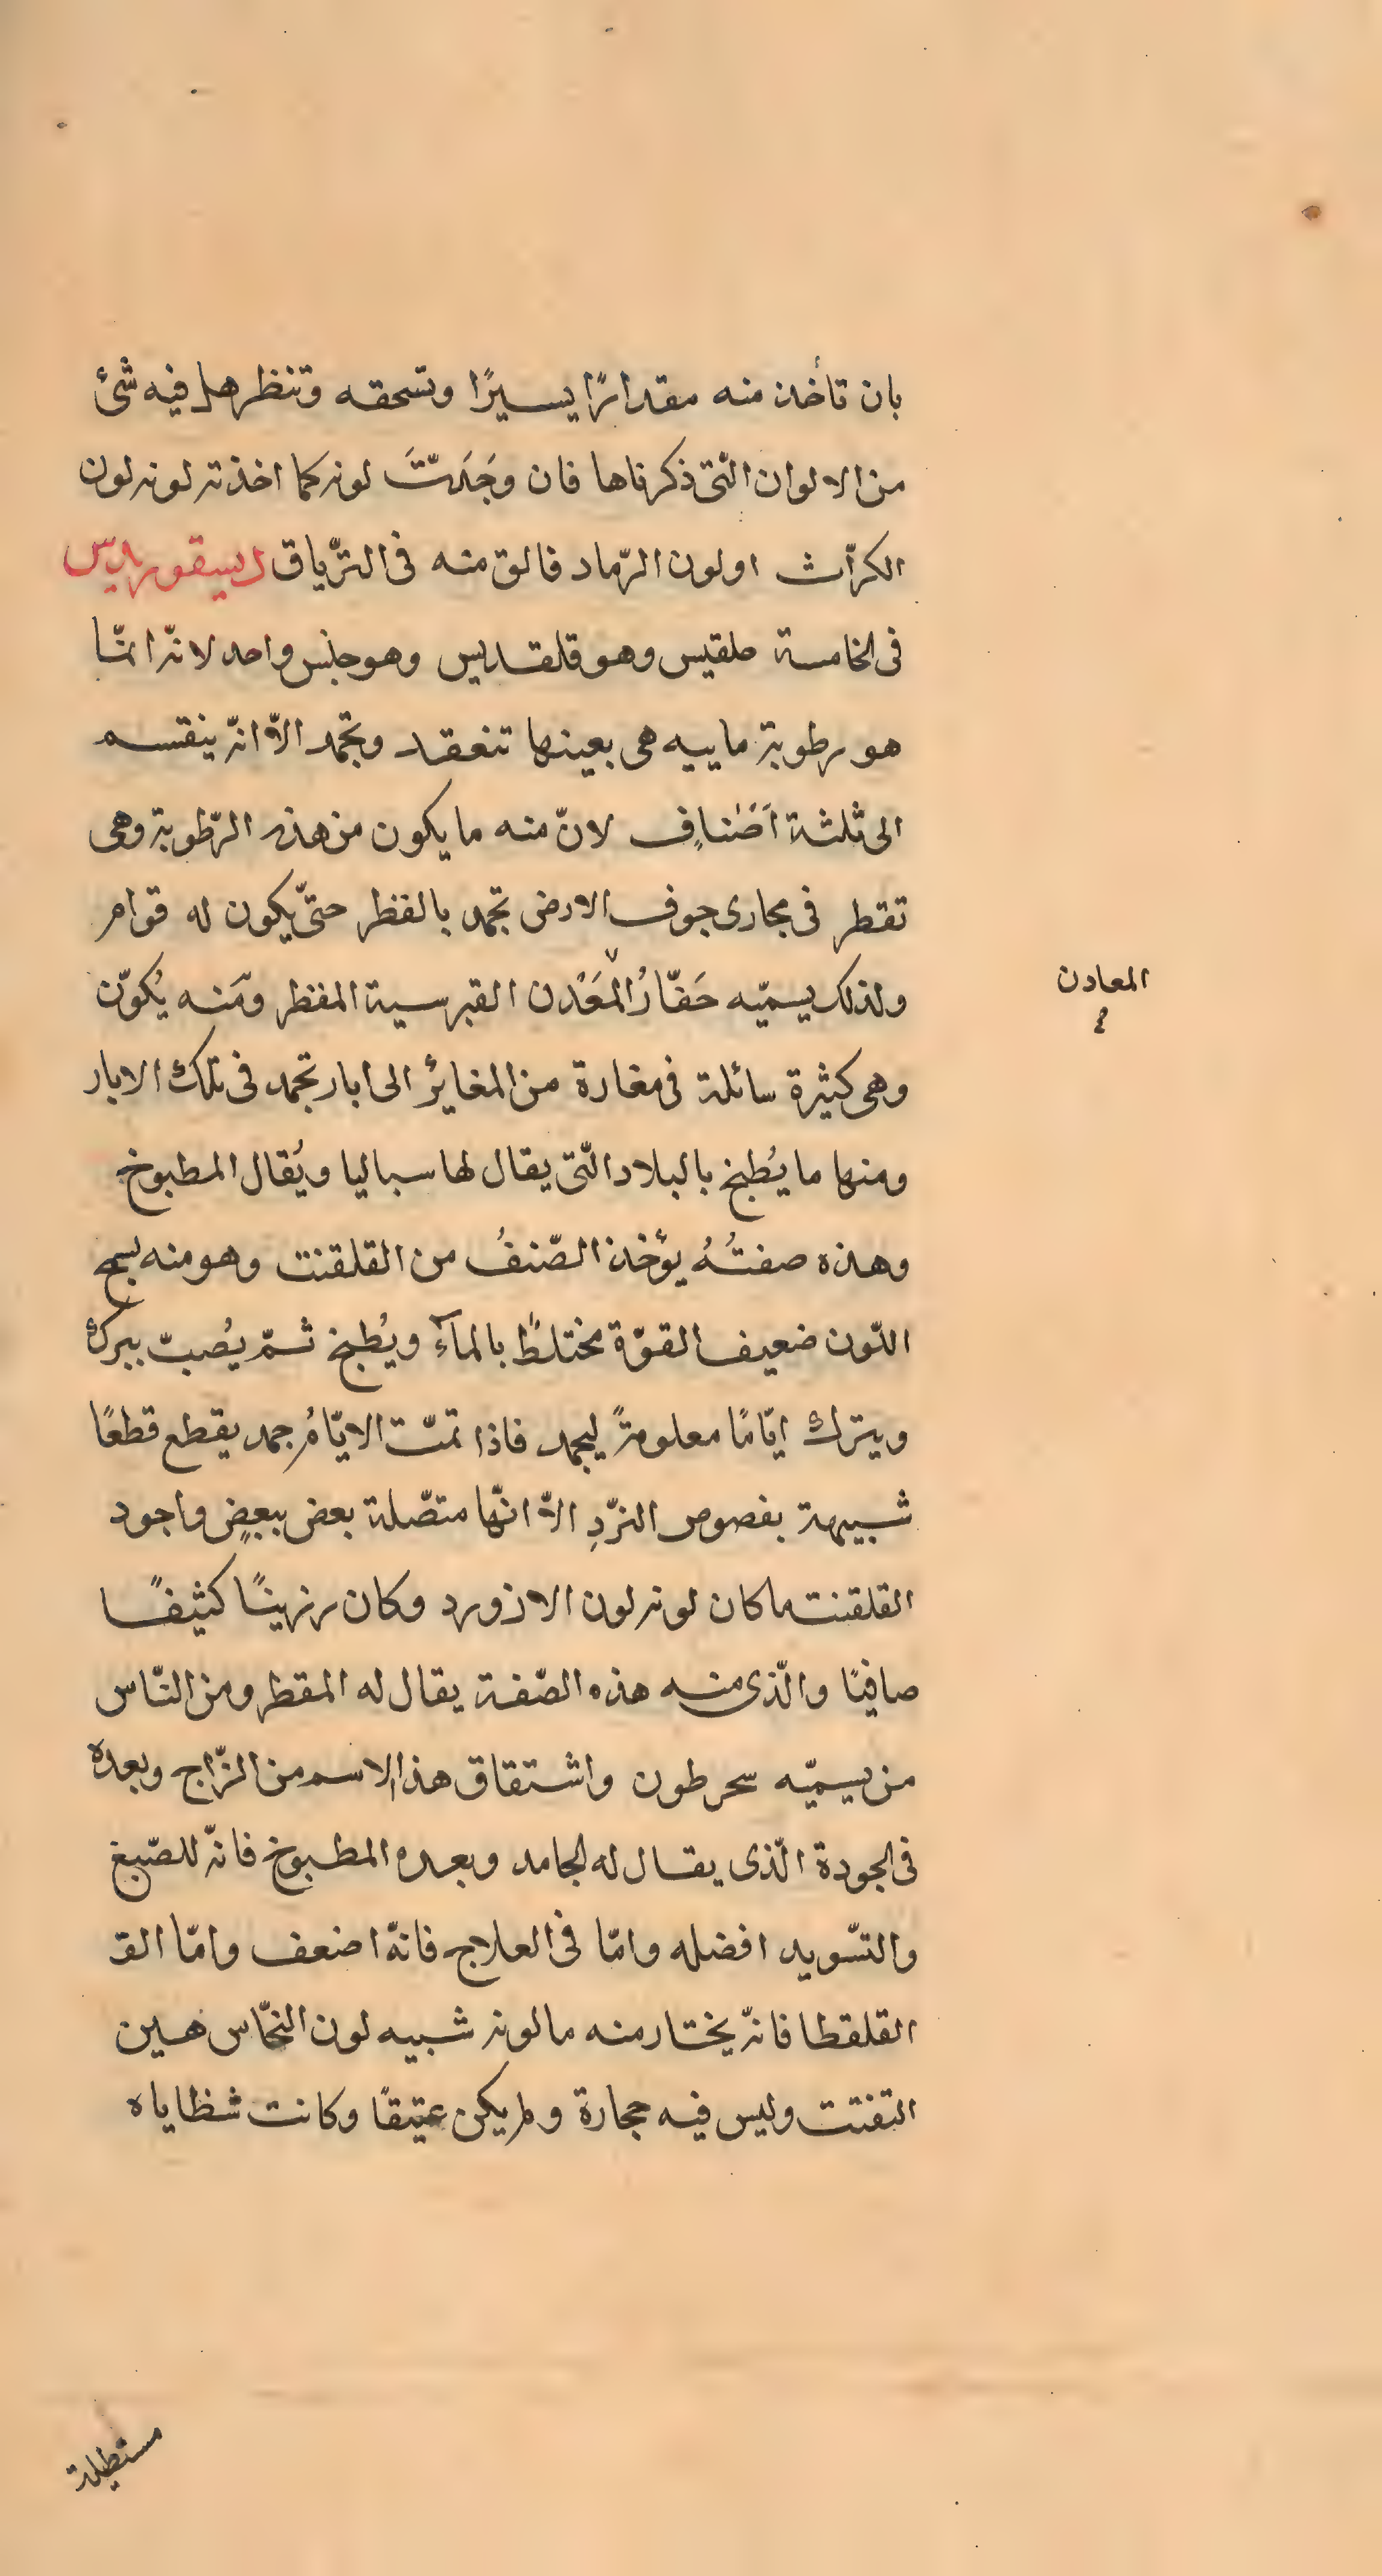 بان تأخذ منه مقدارًا يسيرًا وتسحقه وتنظر هل فيه شئ
من الالوان الّتى ذكرناها فان وجَدتَ لونه كما اخذته لونه لون
الكرّاث او لون الرّماد فالق منه فى التّرياق ديسقوريدس
فى الخامسة حلقيس وهو قلقديس وهو جنس واحد لانّه انمّا
هو رطوبة ماييه هى بعينها تنعقد وتجمد الاّ انّه ينقسم
الى ثلثة اَصْناف لانّ منه ما يكون من هذه الرّطوبة وهى
تقطر فى مجارى جوف الارض تجمد بالفظر حتّى يكون له قوام
ولذلك يسميّه حَفّارُ المَعْدن القبرسية المفظر ومَنه يُكوّن
وهى كثيرة سائلة فى مغارة من المغاير الى ابار تجمد فى تلك الابار
ومنها ما يُطبخ بالبلاد الّتى يقال لها سباليا ويُقال المطبوخ
وهذه صفتُهُ يؤخذ الصّنفُ من القلقنت وهو منه بسمج
اللّون ضعيف القوّة مختلطً بالمآء ويُطبخ ثمّ يُصبّ ببرك
ويترك ايّامًا معلومةً ليجمد فاذا تمّت الايّامُ جمد يقطع قطعًا
شبيهة بفصوص النرّدِ الاّ انّها متصّلة بعض ببعضٍ واجود
القلقنت ما كان لونه لون الازورد وكان رزينًا كثيفًا
صافيًا والّذى منه هذه الصّفة يقال له المقطر ومن النّاس
من يسميّه سحرطون واشتقاق هذا الاسم من الزّاج وبعده
فى الجودة الّذى يقال له الجامد وبعده المطبوخ فانّه للصّبغ
والتسّويد افضله وامّا فى العلاج فانّه اضعف وامّا القـ
القلقطا فانّه يختار منه ما لونه شبيه لون النحّاس هين
التفتت وليس فيه حجارة ولم يكن عتيقًا وكانت شظاياه
المعادن
مستطيلة